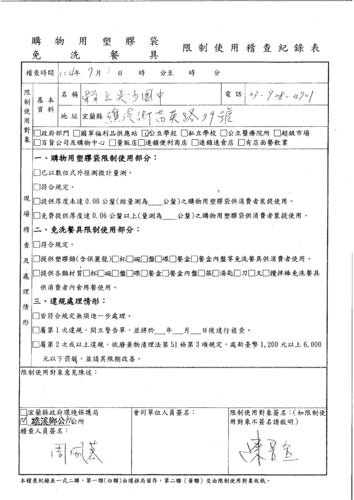 購物用塑膠袋
免洗餐具
限制使用稽查紀錄表
稽查時間 104年 9月 1日 時 分至 時 分
限制使用對象
基本資料
名稱 縣立吳沙國中
電話 03-928-4701
地址 宜蘭縣
□政府部門 □國軍福利品供應站 □公立學校 □私立學校 □公立醫療院所 □超級市場
□百貨公司及購物中心 □量販店 □連鎖便利商店 □連鎖速食店 □有店面餐飲業
現場稽查及處理情形
一、購物用塑膠袋限制使用部分：
□已以數位式外徑測微計量測。
□符合規定。
□提供厚度未達 0.06 公釐(經量測為＿＿公釐)之購物用塑膠袋供消費者裝提使用。
□免費提供厚度達 0.06 公釐以上(量測為＿＿公釐)之購物用塑膠袋供消費者裝提使用。
二、免洗餐具限制使用部分：
□符合規定。
□提供塑膠類(含保麗龍)□杯□碗□盤□碟□餐盒□餐盒內盤等免洗餐具供消費者使用。
□提供各類材質□杯□碗□盤□碟□餐盒□餐盒內盤□筷□湯匙□刀□叉□攪拌棒免洗餐具
供消費者內食用餐使用。
三、違規處理情形：
□皆符合規定無須進一步處理。
□屬第 1 次違規，開立警告單，並將於＿＿年＿＿月＿＿日後進行複查。
□屬第 2 次或以上違規，依廢棄物清理法第 51 條第 3 項規定，處新臺幣 1,200 元以上 6,000
元以下罰鍰，並請其限期改善。
限制使用對象意見陳述：
□宜蘭縣政府環境保護局
☑礁溪鄉公所
稽查人員簽名：
會同單位人員簽名：
限制使用對象簽名：(如限制使
用對象不簽名請敘明)
本稽查紀錄表一式二聯，第一聯(白聯)由環保局留存，第二聯(黃聯)交由限制使用對象收執。